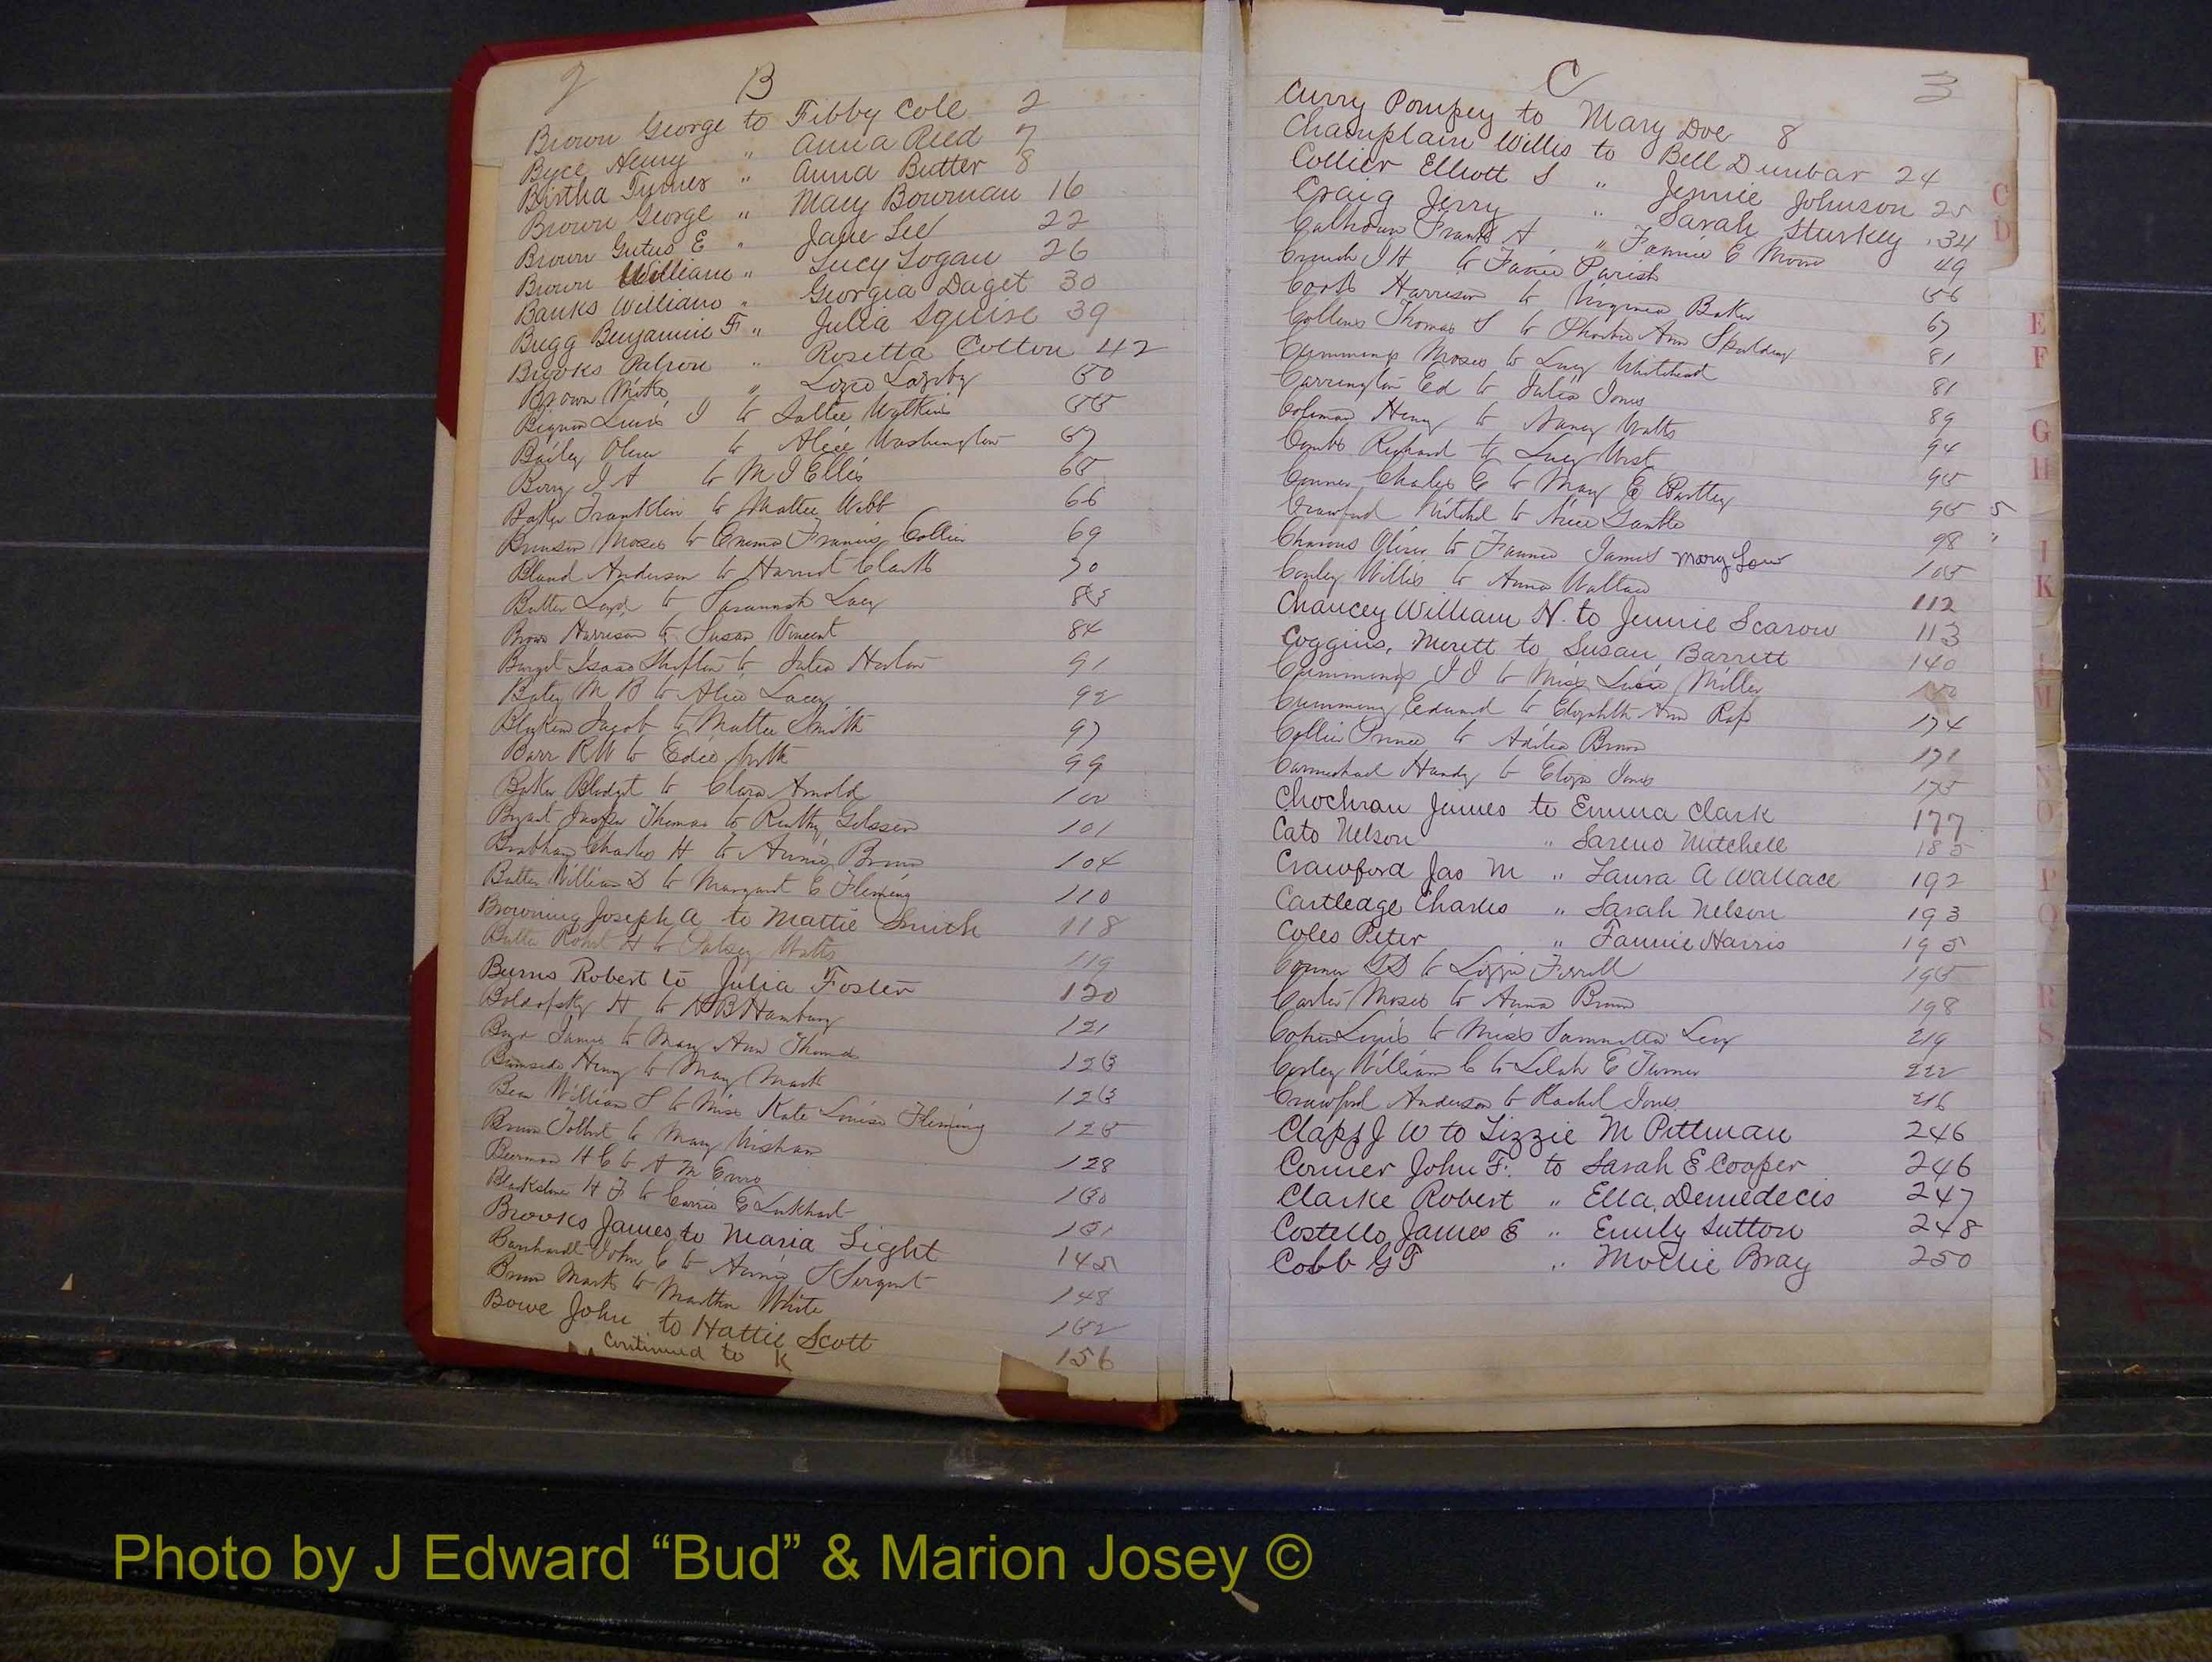 2 B
Brown George to Fibby Cole 2
Byce Henry " Anna Reed 7
Birtha Turner " Anna Butter 8
Brown George " Mary Bowman 16
Brown Gutus E " Jane Lee 22
Brown William " Lucy Logan 26
Banks William " Georgia Daget 30
Bugg Benjamin F " Julia Squire 39
Brooks " Rosetta Cotton 42
Brown " 50
Lewis J to Sallie Watkins 55
Bailey to Alice Washington 57
Berry J A to M J Ellis 65
Baker Franklin to Mattie Webb 66
Moses to Emma Francis Collier 69
Bland Anderson to Harriet Clark 70
Butler to Savannah Lacy
Brown Harrison to Susan Vincent 84
Isaac to Julia 91
M B to Alice Lacey 92
Jacob to Mattie Smith 97
Barr R W to Edie 99
Baker to Clara Arnold 100
Bryant Thomas to 101
Charles H to Annie Brown 104
Butler William D to Margaret E Fleming 110
Browning Joseph A to Mattie Smith 118
Butler Robt H to Watts 119
Burns Robert to Julia Foster 120
H to Hamburg 121
James to Mary Ann Thomas 123
Burnside Henry to May 123
William S to Miss Kate Louise Fleming 125
Brown to Mary 128
H C to A M 130
H F to Carrie E Lockhart 131
Brooks James to Maria Light 145
Barnhardt John C to Annie S Sergent 148
Brown Mark to Martha White 152
Bowe John to Hattie Scott 156
Continued to K
C 3
Curry Pompey to Mary Doe 8
Champlain Willis to Bell Dunbar 24
Collier Elliott S " Jennie Johnson 25
Craig Jerry " Sarah Sturkey 34
Calhoun Frank A " Fannie E Moore 49
J H to Fannie Parish 56
Harrison to Virginia Baker 67
Collins Thomas S to Ann Spalding 81
Cummings Moses to Lucy Whitehead 81
Carrington Ed to Julia Jones 89
Coleman Henry to Nancy Watts 94
Combs Richard to Lucy West 95
Charles E to Mary E Bartley 95 5
Crawford Mitchel to Alice Gantte 98 "
Oliver to Fannie James Mary Low 105
Willis to Anna Wallace 112
Chaucey William N. to Jennie Scarow 113
Coggins, Merett to Susan Barrett 140
Cummings J J to Miss Miller
Cumming Edward to Elizabeth Ann 174
Collier Prince to Brown 171
Carmichael Handy to Eliza Jones 175
Chochran James to Emma Clark 177
Cato Nelson " Sareno Mitchell 185
Crawford Jas M " Laura A Wallace 192
Cartledge Charles " Sarah Nelson 193
Coles Peter " Fannie Harris 195
to Lizzie Ferrell 195
Carter Moses to Anna Brown 198
Cohen Louis to Miss Levy 219
Corley William C to Lelah E Turner 222
Crawford Anderson to Rachel Jones 216
Clapp J W to Lizzie M Pittman 246
Conner John F. to Sarah E Cooper 246
Clarke Robert " Ella Demedecis 247
Costello James E " Emily Sutton 248
Cobb G T " Mollie Bray 250
C
D
E
F
G
H
I
K
M
N
O
P
Q
R
S
Photo by J Edward “Bud” & Marion Josey ©